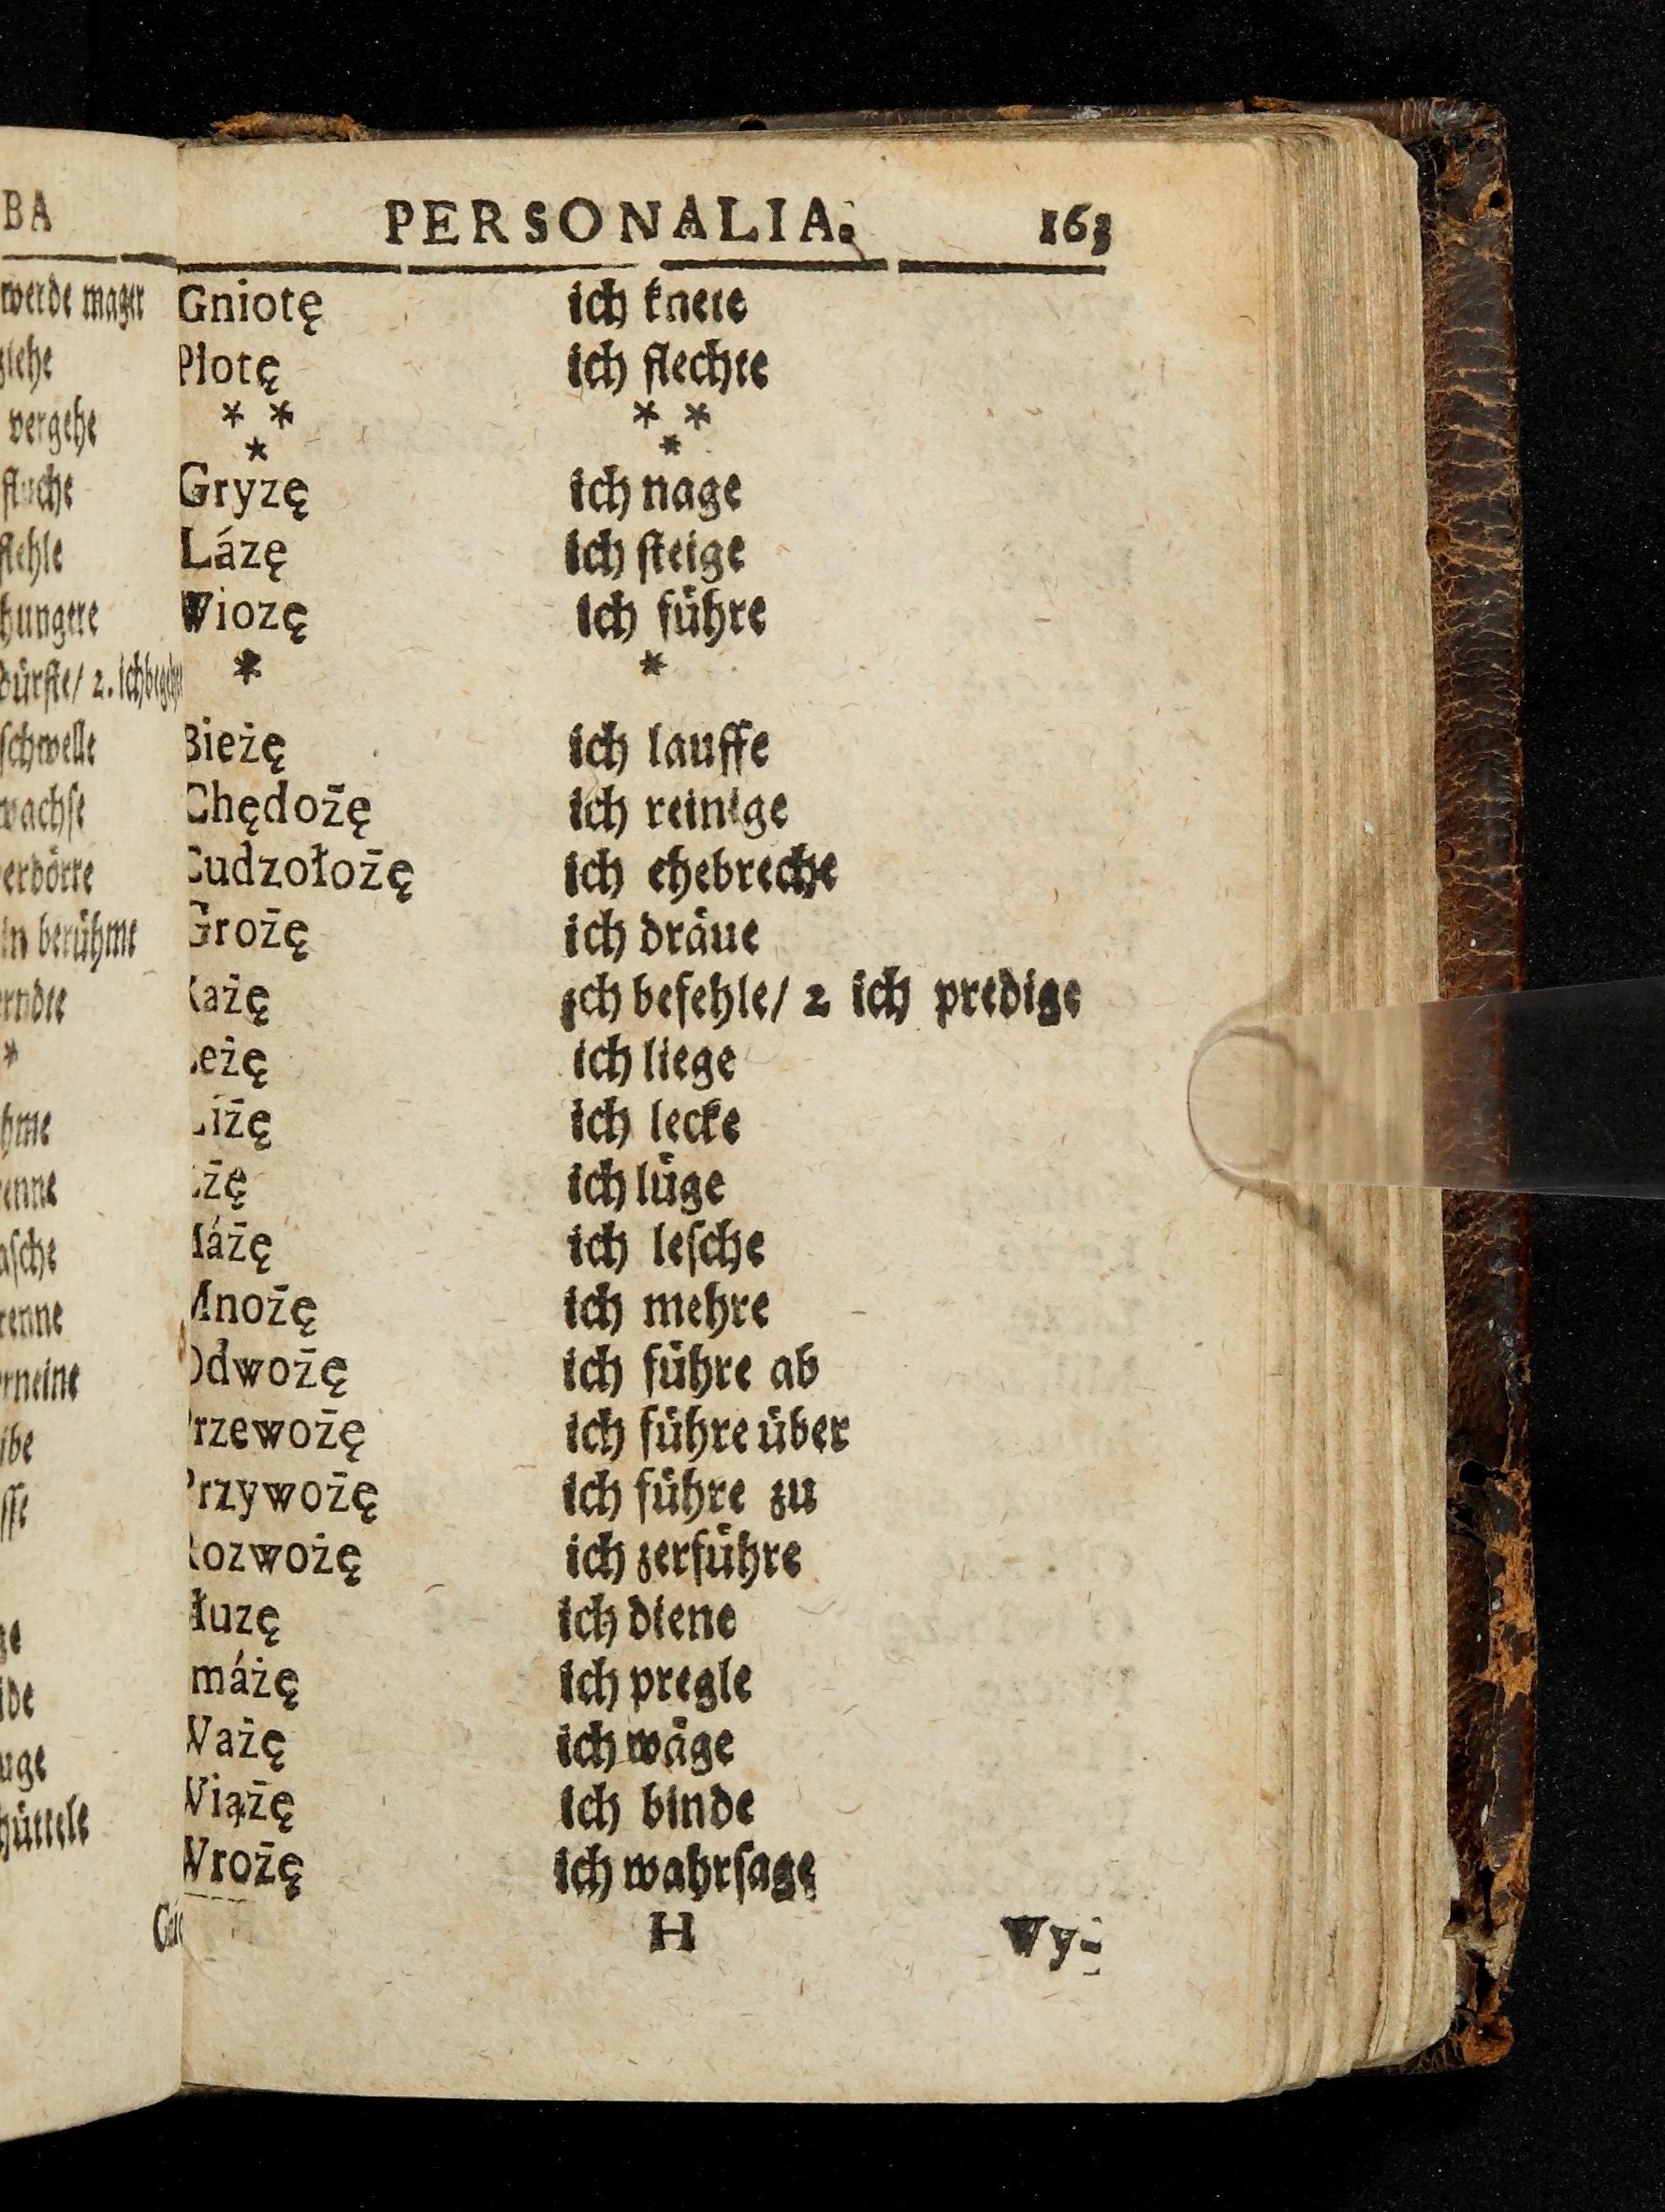 BA
werde mager
ziehe
vergehe
fluche
flehle
hungere
dürſte/ 2. ich begehr
ſchwelle
wachſe
verdörre
in berühme
erndte
*
hme
renne
aſche
renne
rneine
ibe
ſſe
ge
ide
uge
hüttele
PERSONALIA. 163
Gniotę ich knete
Plotę ich flechte
* * * *
* *
Gryzę ich nage
Lázę ich ſteige
Wiozę ich führe
* *
Bieżę ich lauffe
Chędożę ich reinige
Cudzołożę ich ehebreche
Grożę ich dräue
Każę ich befehle/ 2 ich predige
Leżę ich liege
Liżę ich lecke
Łżę ich lüge
Máżę ich leſche
Mnożę ich mehre
Odwożę ich führe ab
Przewożę ich führe über
Przywożę ich führe zu
Rozwożę ich zerführe
łuzę ich diene
máżę ich pregle
Ważę ich wäge
Wiążę ich binde
Wrożę ich wahrſage
H Wy-